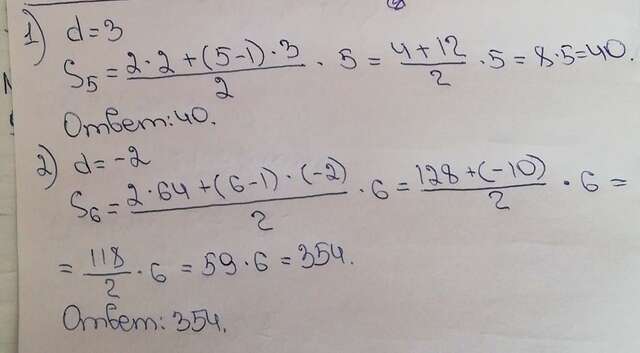 1) d=3
S₅ = (2·2+(5-1)·3)/2 · 5 = (4+12)/2 · 5 = 8·5=40.
Ответ: 40.
2) d=-2
S₆ = (2·64+(6-1)·(-2))/2 · 6 = (128+(-10))/2 · 6 =
= 118/2 · 6 = 59·6 = 354.
Ответ: 354.